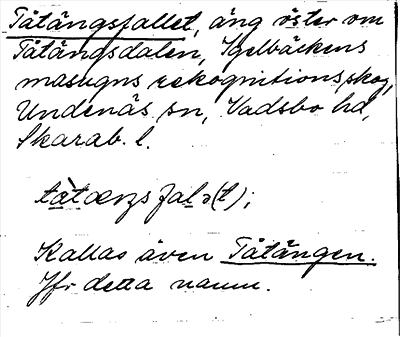 Tåtångsfallet, äng öster om
Tåtångsdalen, Igelbäckens
masugns rekognitionsskog,
Undenäs sn, Vadsbo hd,
Skarab. l.
Kallas även Tåtången.
Jfr detta namn.